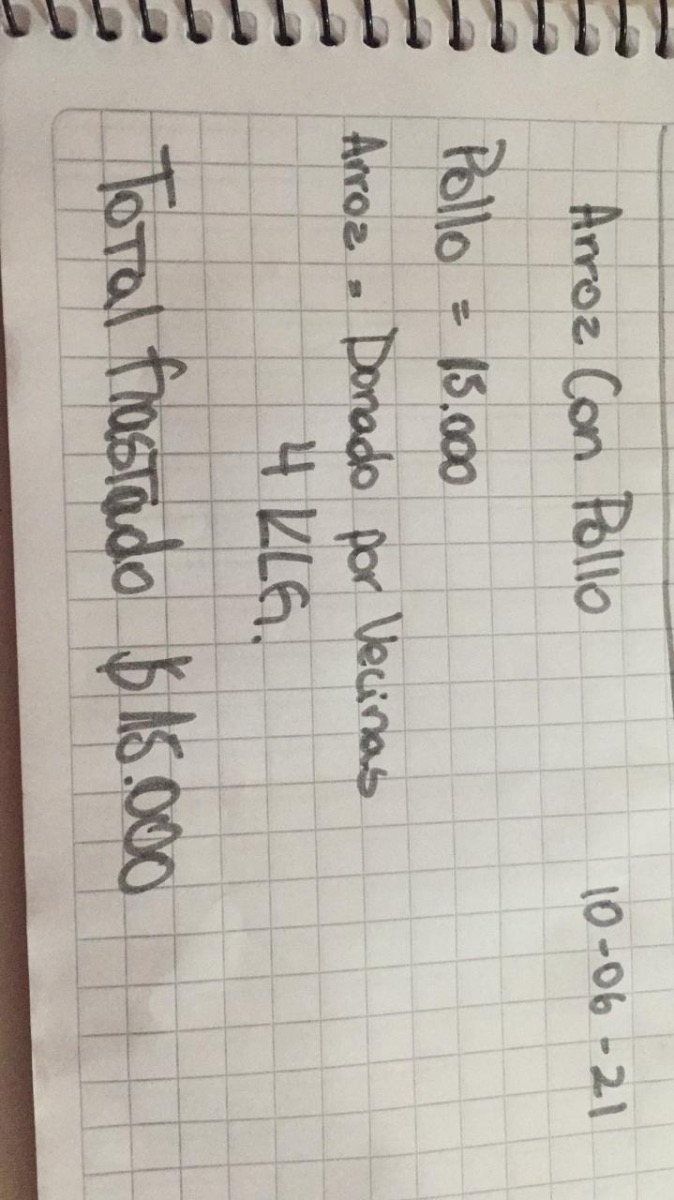 Arroz Con Pollo 10-06-21
Pollo = 15.000
Arroz = Donado por Vecinas
4 KLG.
Total Gastado $15.000